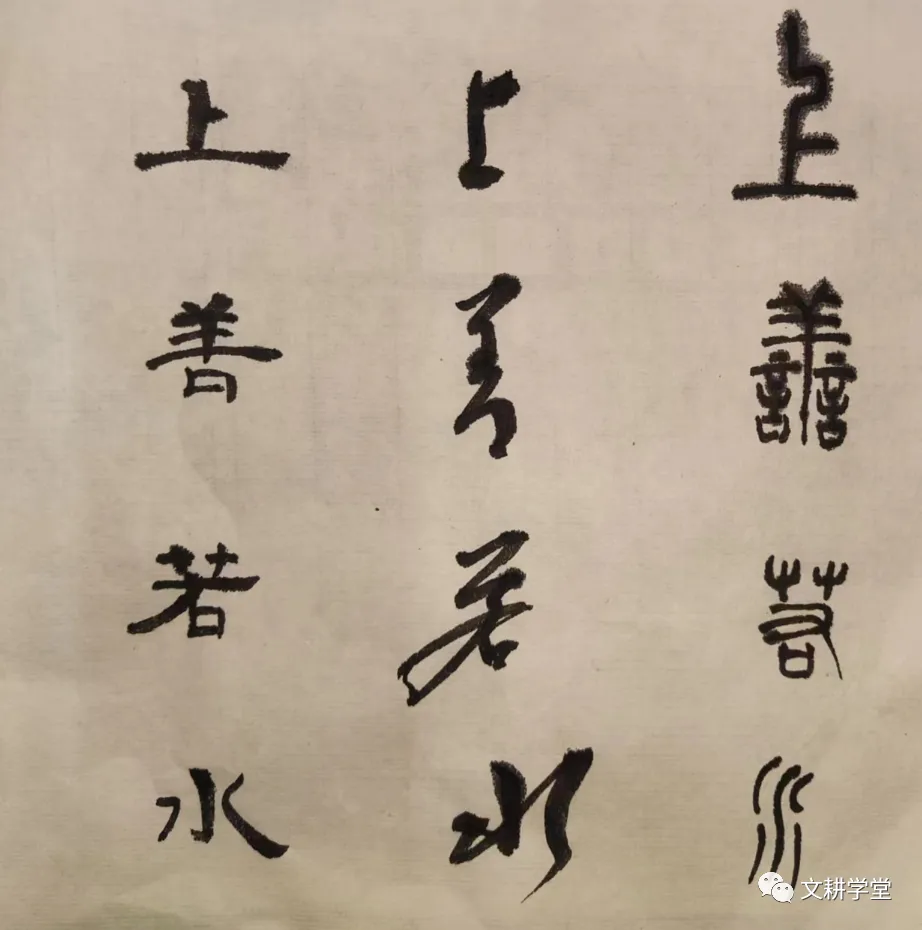 上善若水
上善若水
上善若水
文耕学堂